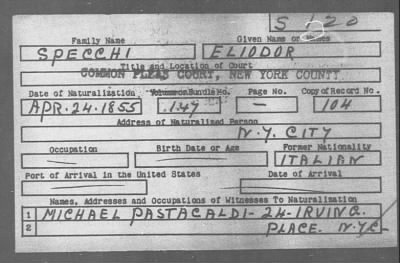 S 520
Family Name Given Name or Names
SPECCHI ELIODOR
Title and Location of Court
COMMON PLEAS COURT, NEW YORK COUNTY
Date of Naturalization Volume or Bundle No. Page No. Copy of Record No.
APR. 24. 1855 147 — 104
Address of Naturalized Person
N.Y. CITY
Occupation Birth Date or Age Former Nationality
ITALIAN
Port of Arrival in the United States Date of Arrival
Names, Addresses and Occupations of Witnesses To Naturalization
1 MICHAEL PASTACALDI - 24 - IRVING.
2 PLACE. N.Y.C.